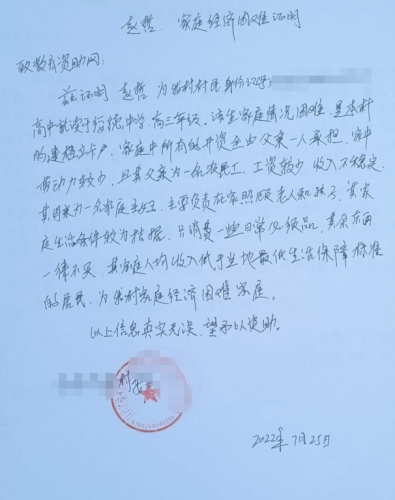 赵哲、家庭经济困难证明
欧教育资助网:
兹证明 赵哲 为我村村民身份证号
高中就读于 中学,高三年级,该生家庭情况困难,是本村
的建档立卡户,家庭中所有的开资全由父亲一人承担,家中
劳动力较少,且其父亲为一名农民工,工资较少,收入不稳定,
其母亲为一名家庭主妇,主要负责在家照顾老人和孩子,其家
庭生活条件较为拮据,只消费一些日常必须品,其余东西
一律不买,其家庭人均收入低于当地最低生活保障标准
的居民,为我村家庭经济困难家庭。
以上信息真实无误,望予以资助。
村
2022年7月25日